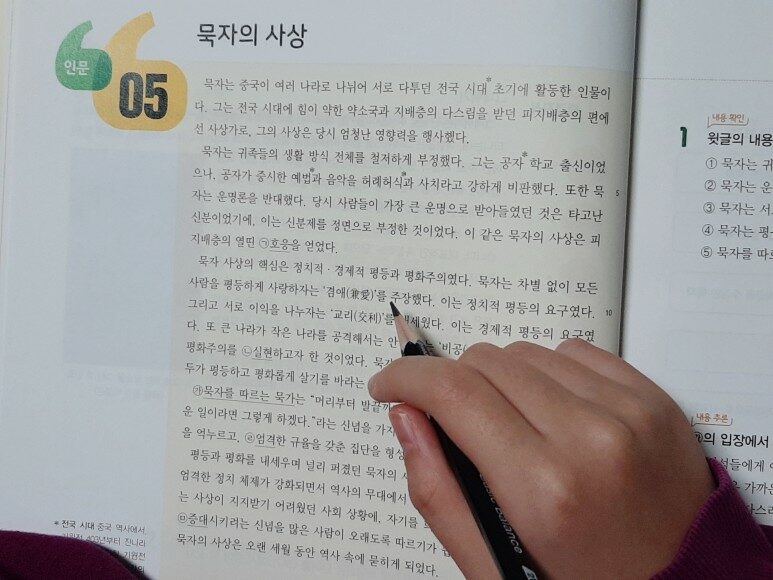 인문
05
묵자의 사상
묵자는 중국이 여러 나라로 나뉘어 서로 다투던 전국 시대* 초기에 활동한 인물이
다. 그는 전국 시대에 힘이 약한 약소국과 지배층의 다스림을 받던 피지배층의 편에
선 사상가로, 그의 사상은 당시 엄청난 영향력을 행사했다.
묵자는 귀족들의 생활 방식 전체를 철저하게 부정했다. 그는 공자* 학교 출신이었
으나, 공자가 중시한 예법*과 음악을 허례허식*과 사치라고 강하게 비판했다. 또한 묵 5
자는 운명론을 반대했다. 당시 사람들이 가장 큰 운명으로 받아들였던 것은 타고난
신분이었기에, 이는 신분제를 정면으로 부정한 것이었다. 이 같은 묵자의 사상은 피
지배층의 열띤 ㉠호응을 얻었다.
묵자 사상의 핵심은 정치적·경제적 평등과 평화주의였다. 묵자는 차별 없이 모든
사람을 평등하게 사랑하자는 '겸애(兼愛)'를 주장했다. 이는 정치적 평등의 요구였다. 10
그리고 서로 이익을 나누자는 '교리(交利)'를 내세웠다. 이는 경제적 평등의 요구였
다. 또 큰 나라가 작은 나라를 공격해서는 안 '비공(
평화주의를 ㉡실현하고자 한 것이었다.
두가 평등하고 평화롭게 살기를 바라는
㉮묵자를 따르는 묵가는 "머리부터
운 일이라면 그렇게 하겠다."라는 신념을
을 억누르고, 엄격한 규율을 갖춘 집단을
평등과 평화를 내세우며 널리 퍼졌던 묵자의
엄격한 정치 체제가 강화되면서 역사의 무대에서
는 사상이 지지받기 어려웠던 사회 상황에, 자기를
㉤증대시키려는 신념을 많은 사람이 오래도록 따르기가
묵자의 사상은 오랜 세월 동안 역사 속에 묻히게 되었다.
* 전국 시대 중국 역사에서
기원전 403년부터 진나라
기원전
내용 확인
1 윗글의 내용
① 묵자는 귀
② 묵자는 운
③ 묵자는 서
④ 묵자는 평
⑤ 묵자를 따르
내용 추론
의 입장에서